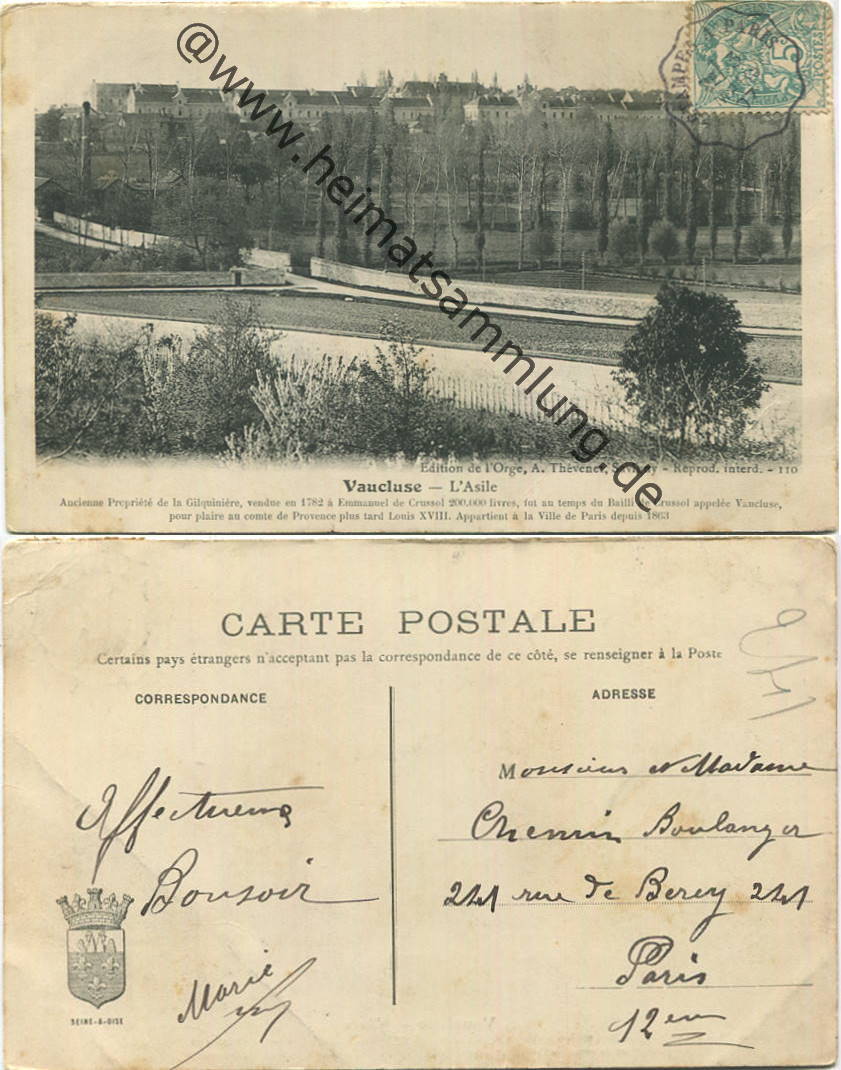 @www.heimatsammlung.de
POSTES
5
Edition de l'Orge, A. Thévenet, Savigny - Reprod. interd. - 110
Vaucluse — L'Asile
Ancienne Propriété de la Gilquinière, vendue en 1782 à Emmanuel de Crussol 200.000 livres, fut au temps du Bailli de Crussol appelée Vaucluse,
pour plaire au comte de Provence plus tard Louis XVIII. Appartient à la Ville de Paris depuis 1863
CARTE POSTALE
Certains pays étrangers n'acceptant pas la correspondance de ce côté, se renseigner à la Poste
241
CORRESPONDANCE
ADRESSE
Affectueux
Bonsoir
Marie
SEINE-&-OISE
Monsieur et Madame
Chemin Boulanger
241 rue de Bercy 241
Paris
12em